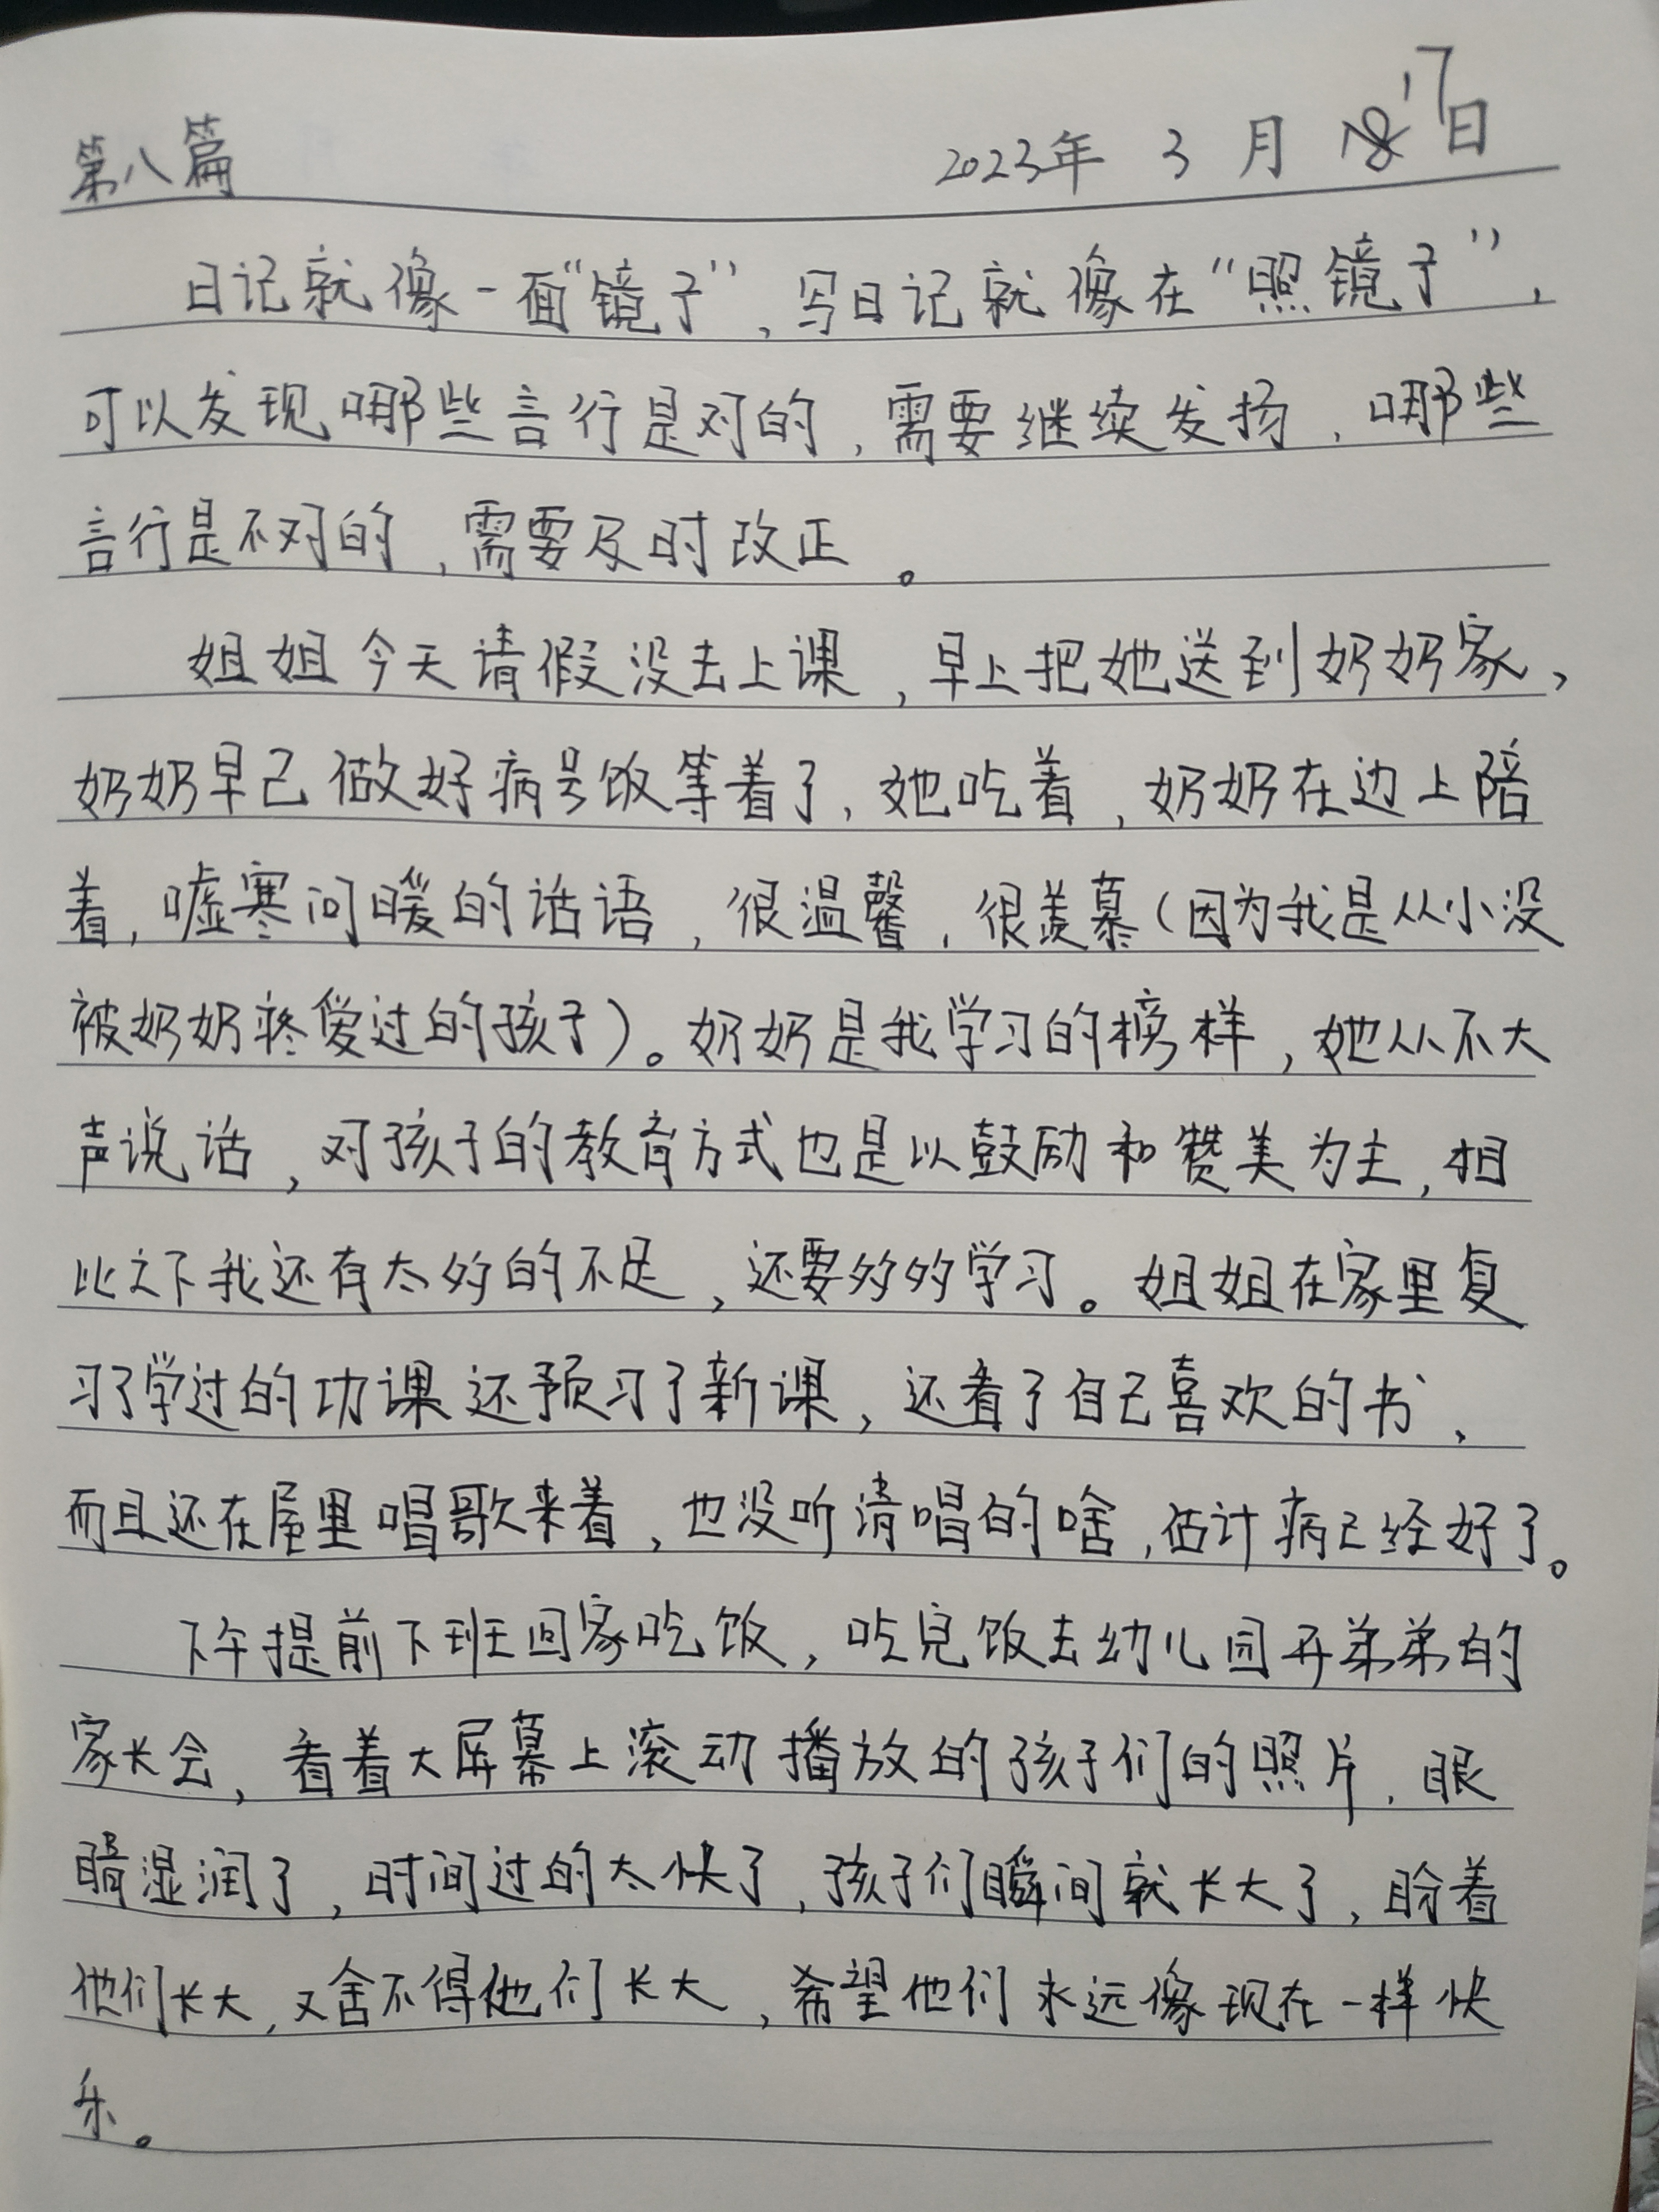 第八篇 2023年 3 月 17日
日记就像一面“镜子”,写日记就像在“照镜子”,
可以发现哪些言行是对的,需要继续发扬,哪些
言行是不对的,需要及时改正。
姐姐今天请假没去上课,早上把她送到奶奶家,
奶奶早已做好病号饭等着了,她吃着,奶奶在边上陪
着,嘘寒问暖的话语,很温馨,很羡慕(因为我是从小没
被奶奶疼爱过的孩子)。奶奶是我学习的榜样,她从不大
声说话,对孩子的教育方式也是以鼓励和赞美为主,相
比之下我还有太多的不足,还要多多学习。姐姐在家里复
习了学过的功课还预习了新课,还看了自己喜欢的书,
而且还在屋里唱歌来着,也没听清唱的啥,估计病已经好了。
下午提前下班回家吃饭,吃完饭去幼儿园开弟弟的
家长会,看着大屏幕上滚动播放的孩子们的照片,眼
睛湿润了,时间过的太快了,孩子们瞬间就长大了,盼着
他们长大,又舍不得他们长大,希望他们永远像现在一样快
乐。